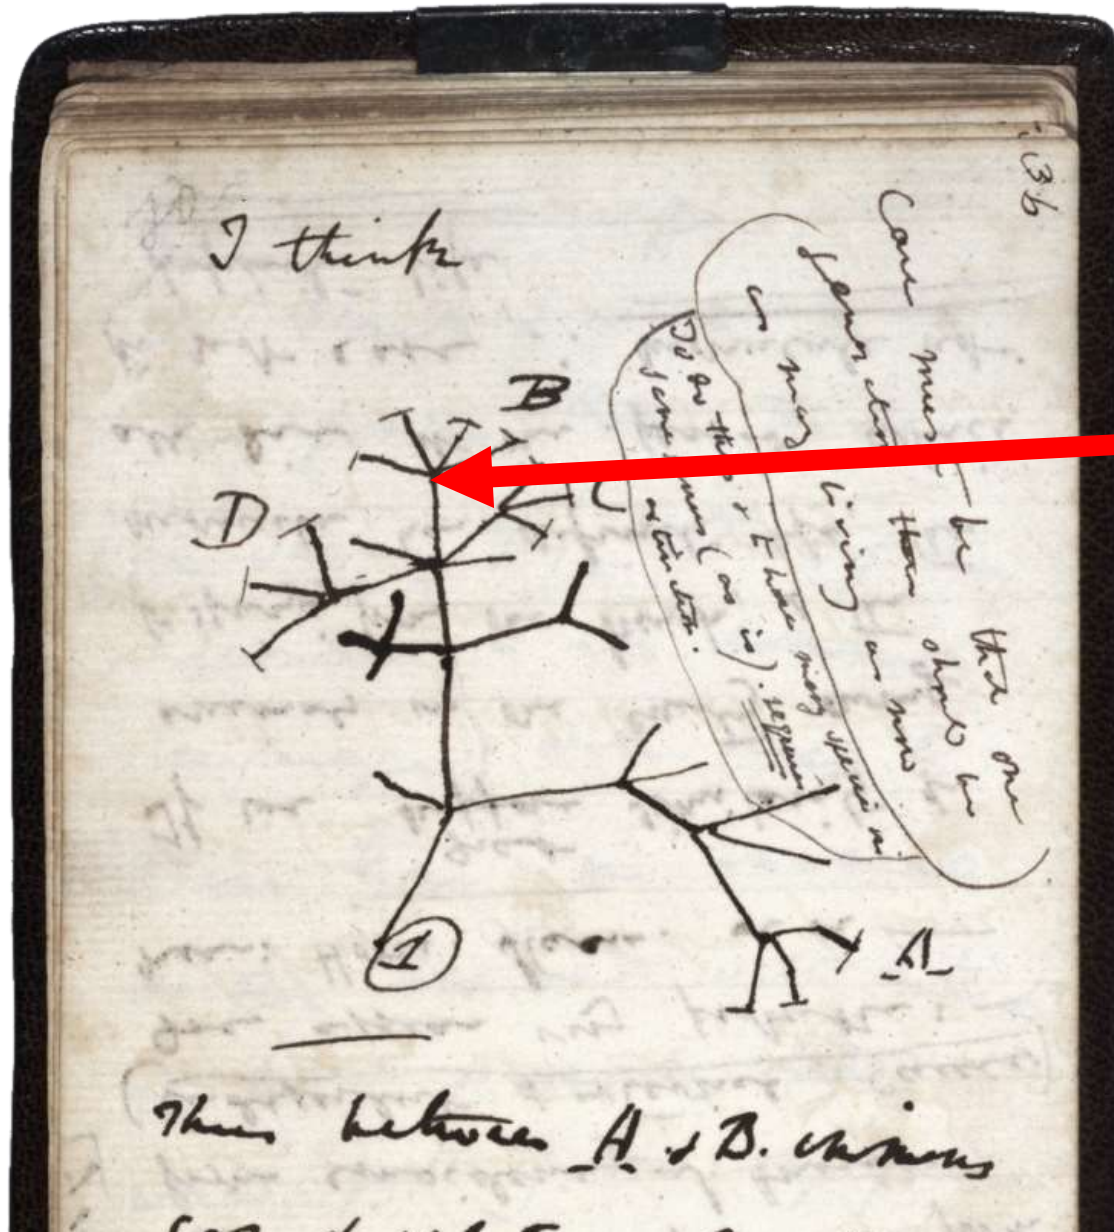 36
I think
B
D
C
A
1
Case must be that one
generation then should be
as many living as now
To do this & to have many species in
same genus (as is). requires
extinction.
Thus between A & B. immens